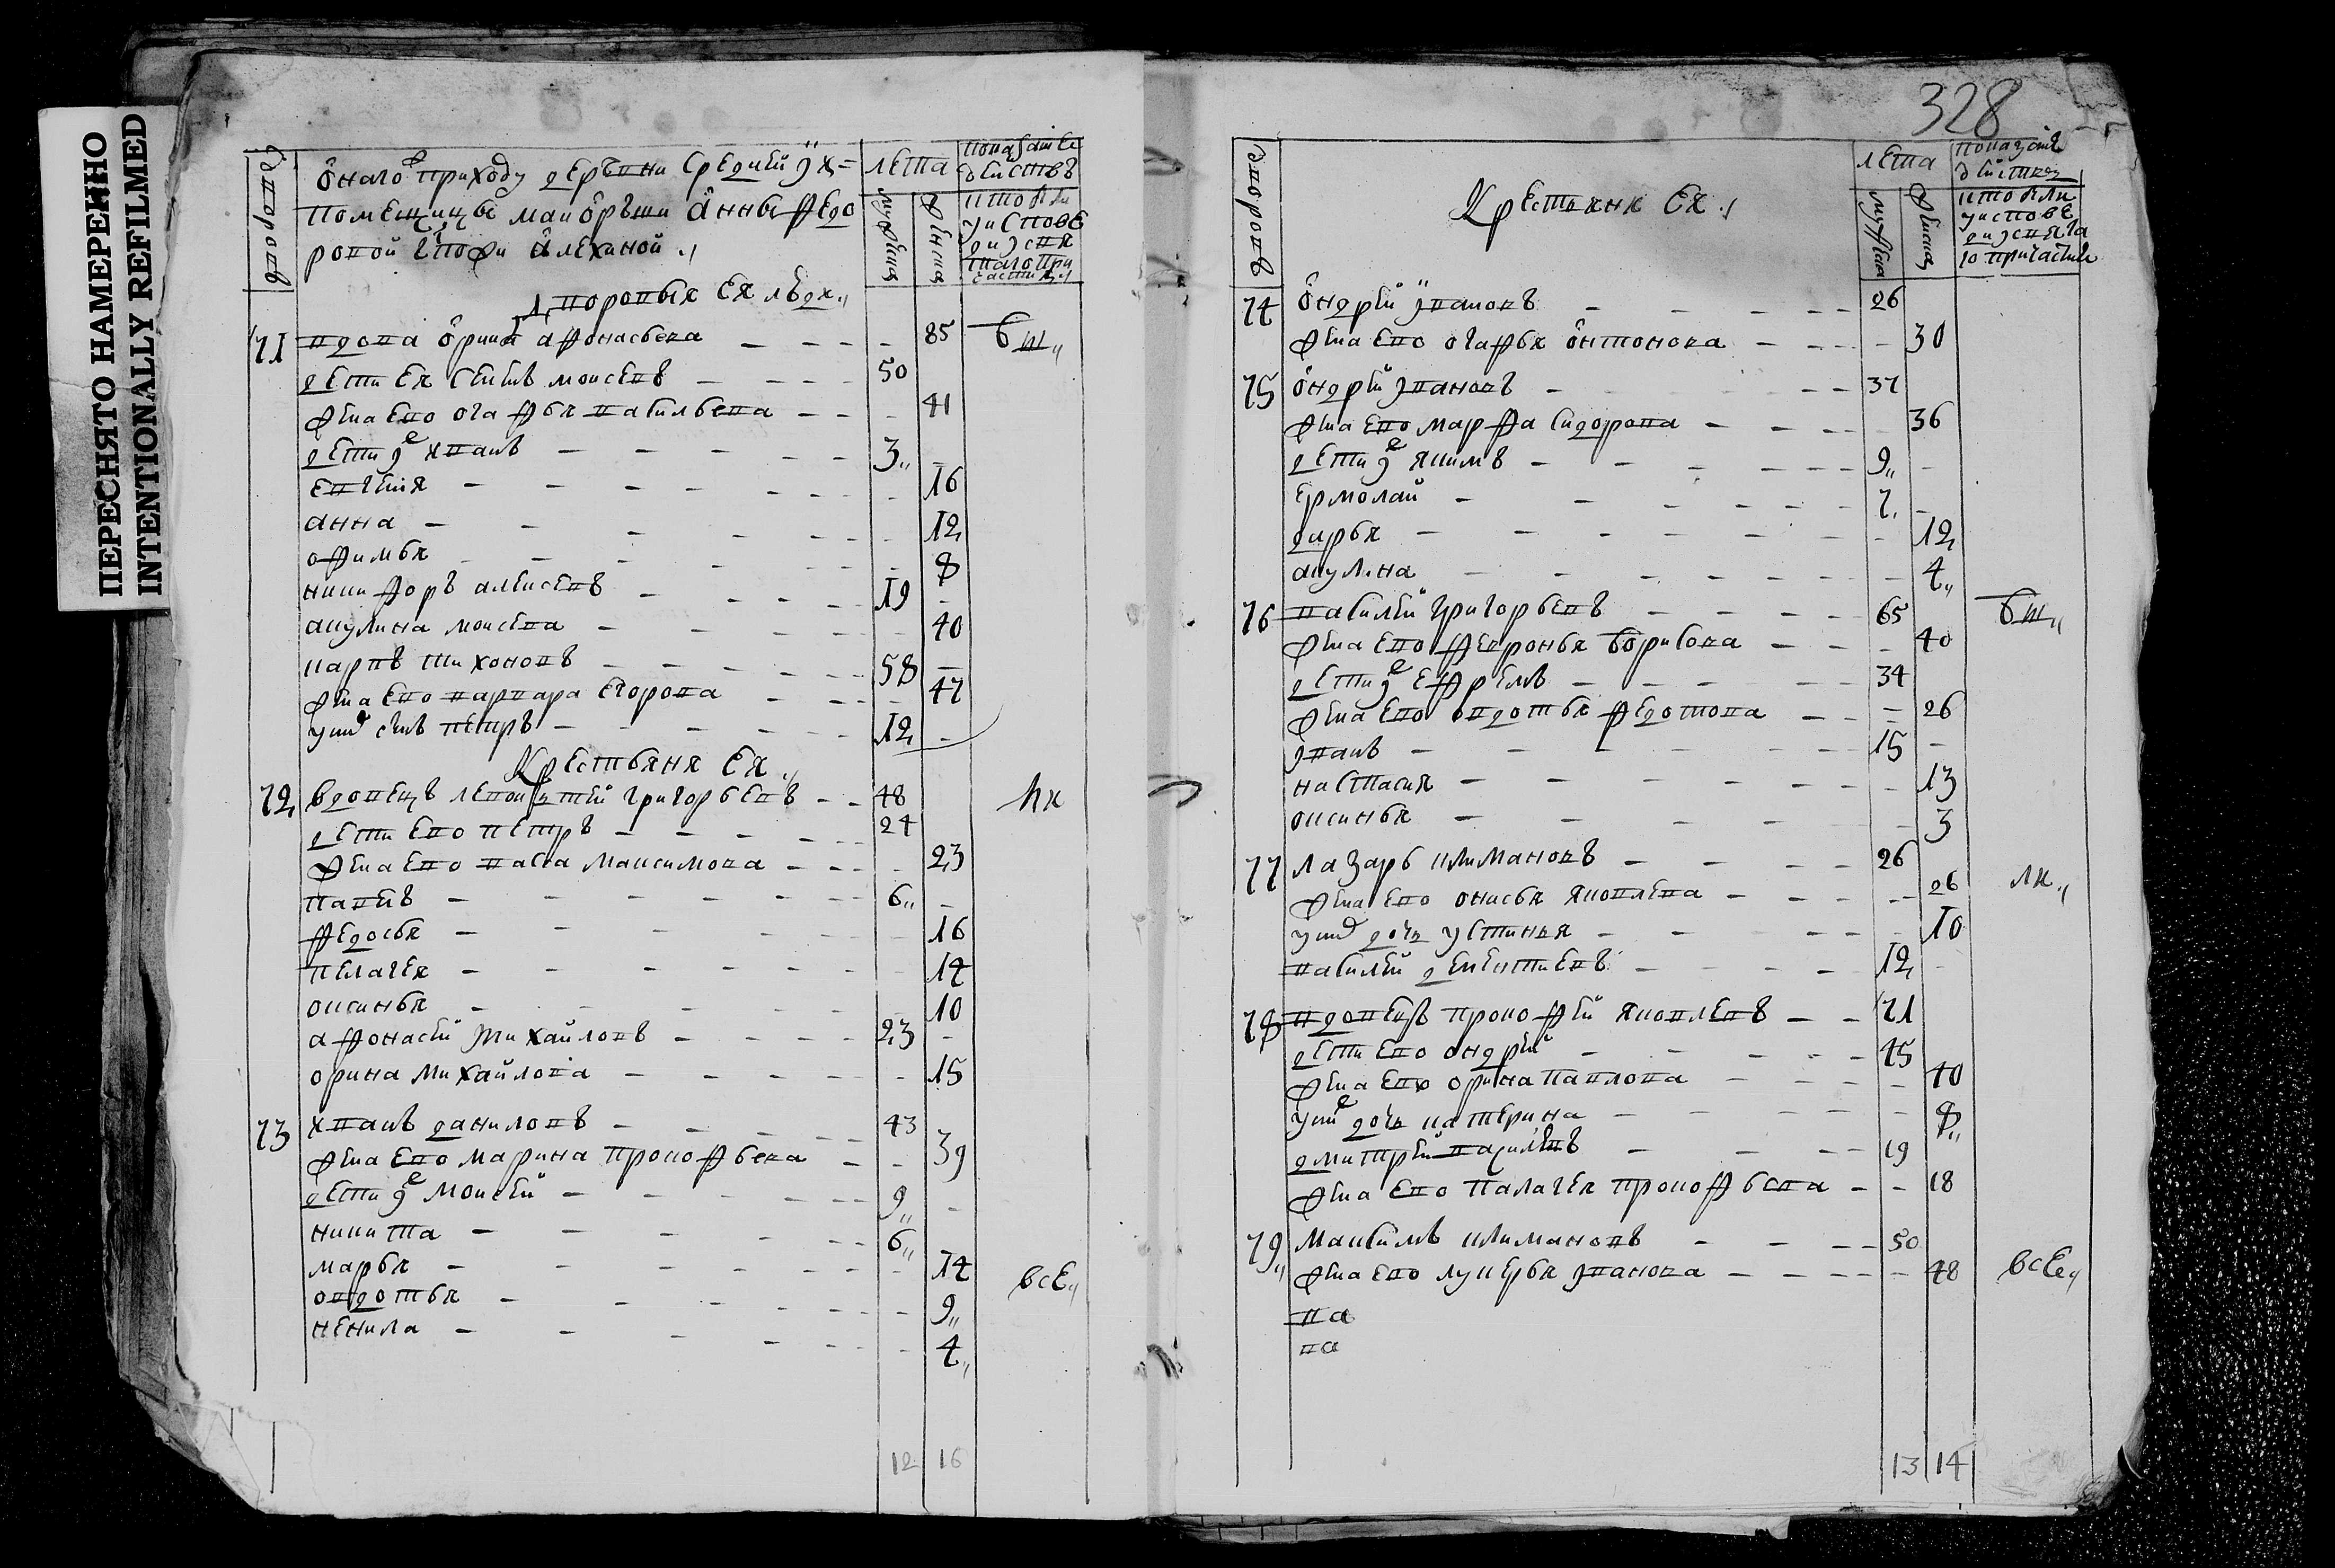 ПЕРЕСНЯТО НАМЕРЕННО
INTENTIONALLY REFILMED
дворовъ
онаго приходу деревни Средней
помещицы маиорши Анны Федо
ровой Алехиной
лета
мужеска
женска
дворовыя ея люди
71 вдова Орина афонасьева 85
дети ея Сении моисеевъ 50
жена ево огафья васильева 41
дети их иванъ 3
евгения 16
анна 12
офимья 8
никифоръ алексеевъ 19
акулина моисеева 40
карпъ тихоновъ 58
жена ево варвара егорова 47
у них сынъ петръ 12
Крестьяня Ея
72 вдовецъ леонтей григорьевъ 48
дети ево петръ 24
жена ево васса максимова 23
павелъ 6
федосья 16
пелагея 14
оксинья 10
афонасей михайловъ 23
орина михайлова 15
73 иванъ даниловъ 43
жена ево марина прокофьева 39
дети их моисей 9
никита 6
марья 14
овдотья 9
ненила 4
все
12 16
328
дворовъ
Крестьяня Ея
лета
мужеска
женска
74 Ондрей ивановъ 26
жена ево огафья онтонова 30
75 Ондрей ивановъ 37
жена ево марфа сидорова 36
дети их якимъ 9
ермолай 7
дарья 12
акулина 4
76 василей григорьевъ 65
жена ево февронья борисова 40
дети их ефремъ 34
жена ево овдотья федотова 26
иванъ 15
настасия 13
оксинья 3
77 лазарь климановъ 26
жена ево онисья яковлева 26
у них дочь устинья 10
василей дементиевъ 12
78 вдовецъ прокофей яковлевъ 71
дети ево ондрей 45
жена ево орина павлова 40
у них дочь катерина 8
дмитрей василевъ 19
жена ево палагея прокофьева 18
79 максимъ климановъ 50
жена ево лукерья иванова 48
все
ва
ва
13 14